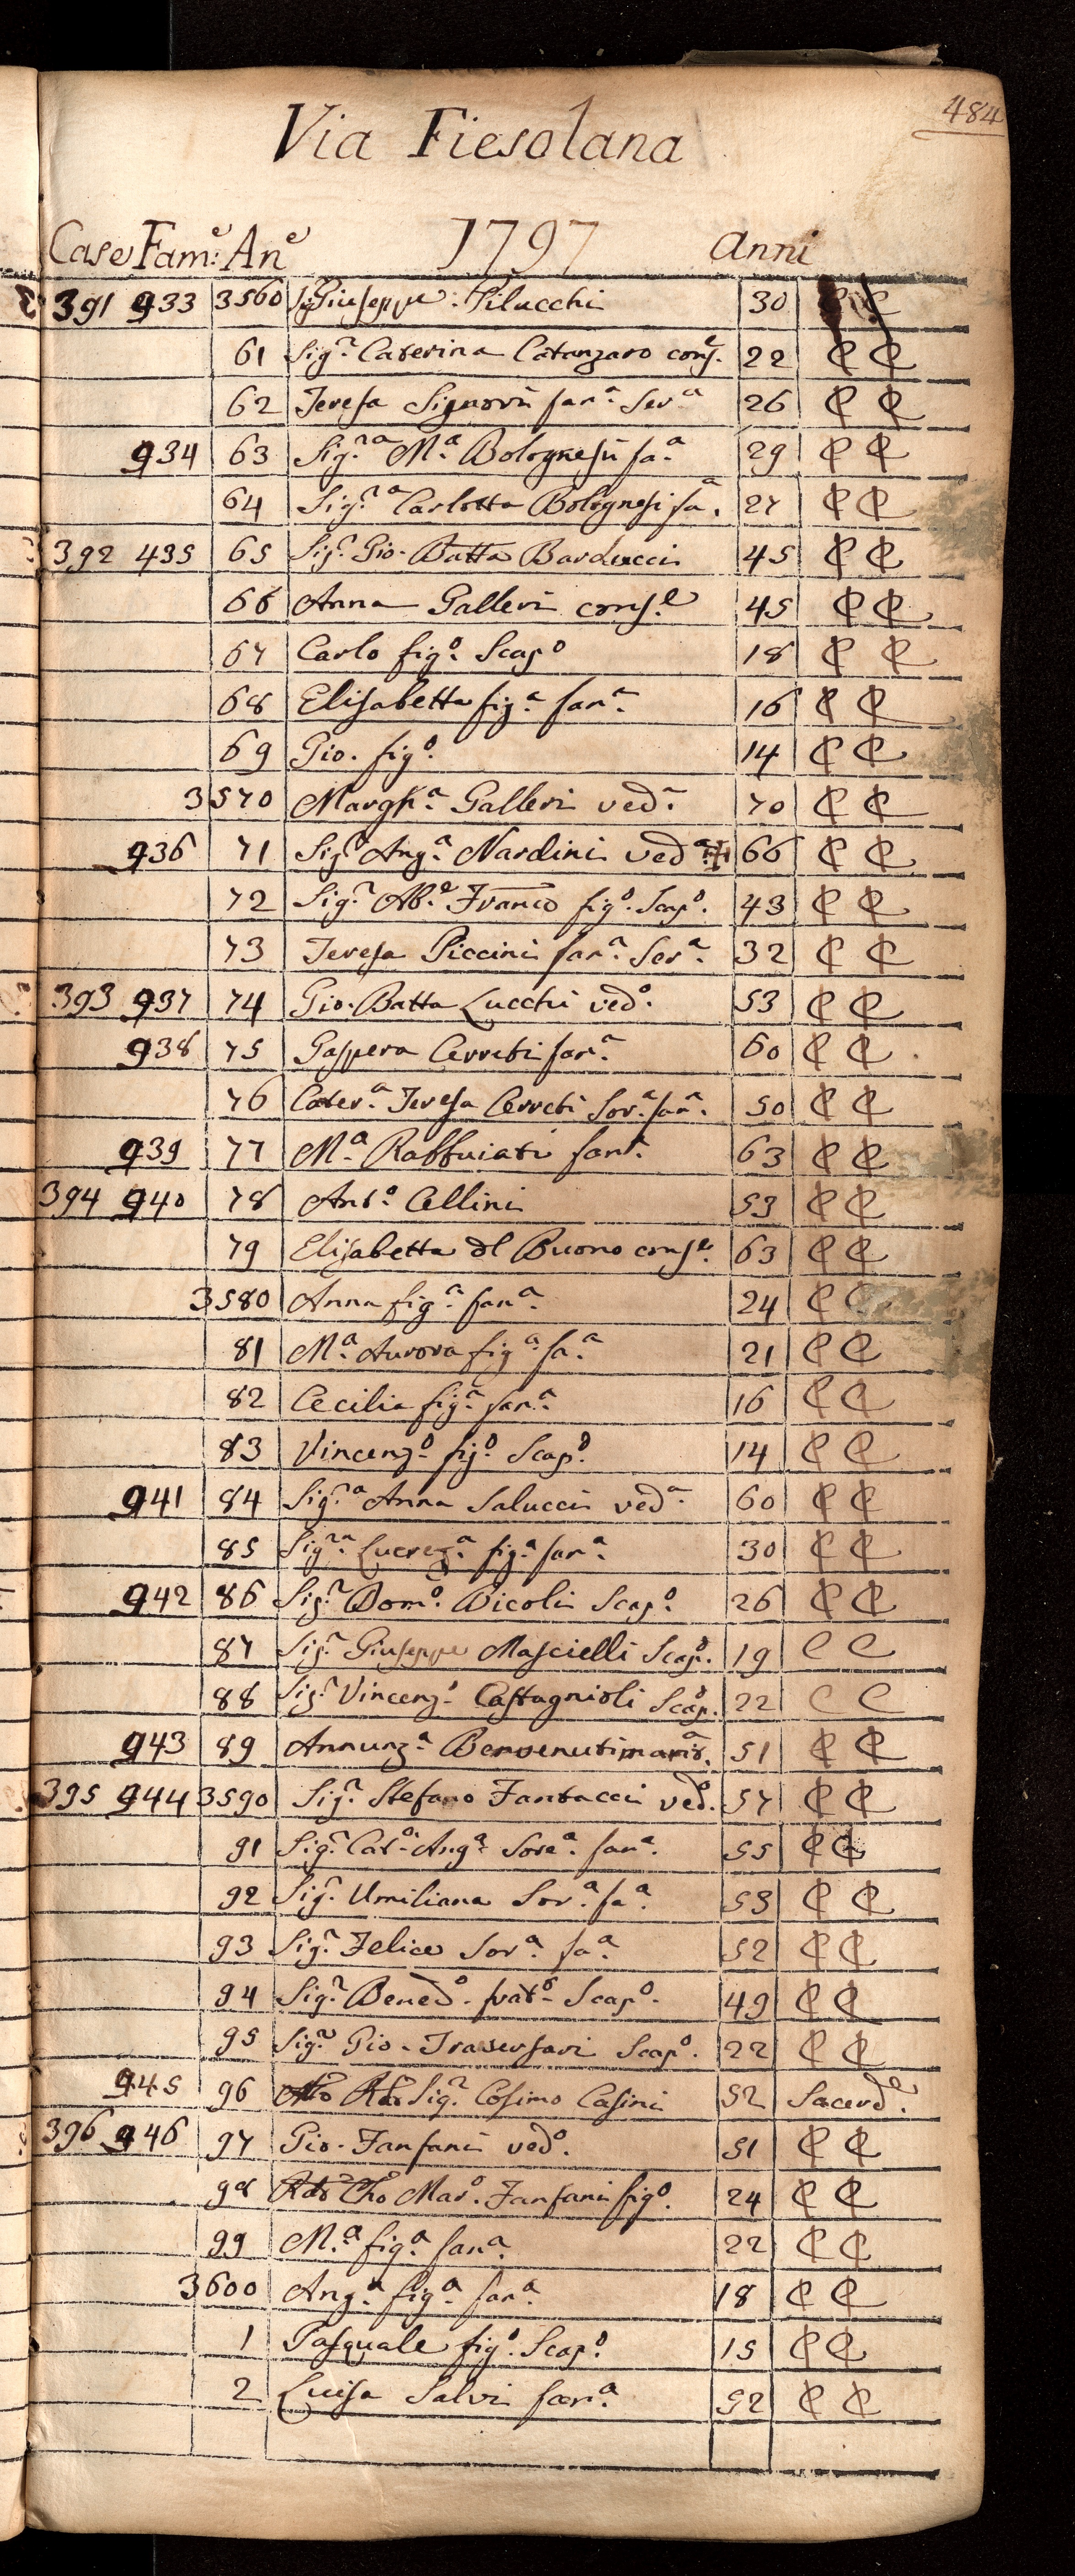 484
Via Fiesolana
Case Fam:e An.e 1797 Anni
391 933 3560 Sig.r Giuseppe Pilucchi 30 C C
61 Sig.ra Caterina Catanzaro cons.e 22 C C
62 Teresa Signorii fan.a Ser.a 26 C C
934 63 Sig.ra M.a Bolognesii fa.a 29 C C
64 Sig.ra Carlotta Bolognesi fa.a 27 C C
392 435 65 Sig.r Gio. Batta Barducci 45 C C
66 Anna Galleri cons.e 45 C C
67 Carlo fig.o Scap.o 18 C C
68 Elisabetta fig.a fan.a 16 C C
69 Gio. fig.o 14 C C
3570 Margh.a Galleri ved.a 70 C C
936 71 Sig.a Ang.a Nardini ved.a 66 C C
72 Sig.r Ab.e Franco fig.o Scap.o 43 C C
73 Teresa Piccini fan.a Ser.a 32 C C
393 937 74 Gio. Batta Lucchi ved.o 53 C C
938 75 Gaspera Cerreti fan.a 60 C C
76 Cater.a Teresa Cerreti Sor.a fan.a 50 C C
939 77 M.a Rabbuiati fant. 63 C C
394 940 78 Ant.o Cellini 53 C C
79 Elisabetta dl Buono cons.e 63 C C
3580 Anna fig.a fan.a 24 C C
81 M.a Aurora fig.a fa.a 21 C C
82 Cecilia fig.a fan.a 16 C C
83 Vincenz.o fig.o Scap.o 14 C C
941 84 Sig.ra Anna Salucci ved.a 60 C C
85 Sig.ra Lucrez.a fig.a fan.a 30 C C
942 86 Sig.r Dom.o Dicoli Scap.o 26 C C
87 Sig.r Giuseppe Mascielli Scap.o 19 C C
88 Sig.r Vincenz.o Castagnioli Scap.o 22 C C
943 89 Annunz.a Benvenuti marit.a 51 C C
395 944 3590 Sig.r Stefano Fantacci ved.o 57 C C
91 Sig.ra Cat.a Ang.a Sore.a fan.a 55 C C
92 Sig.ra Umiliana Sor.a fa.a 53 C C
93 Sig.ra Felice Sor.a fa.a 52 C C
94 Sig.r Bened.o frat.o Scap.o 49 C C
95 Sig.r Gio. Traversari Scap.o 22 C C
945 96 Rdo Sig.r Cosimo Casini 52 Sacerd.e
396 946 97 Gio. Fanfani ved.o 51 C C
98 Rdo Cho Mar.o Fanfani fig.o 24 C C
99 M.a fig.a fan.a 22 C C
3600 Ang.a fig.a fan.a 18 C C
1 Pasquale fig.o Scap.o 15 C C
2 Luisa Salvi fan.a 52 C C